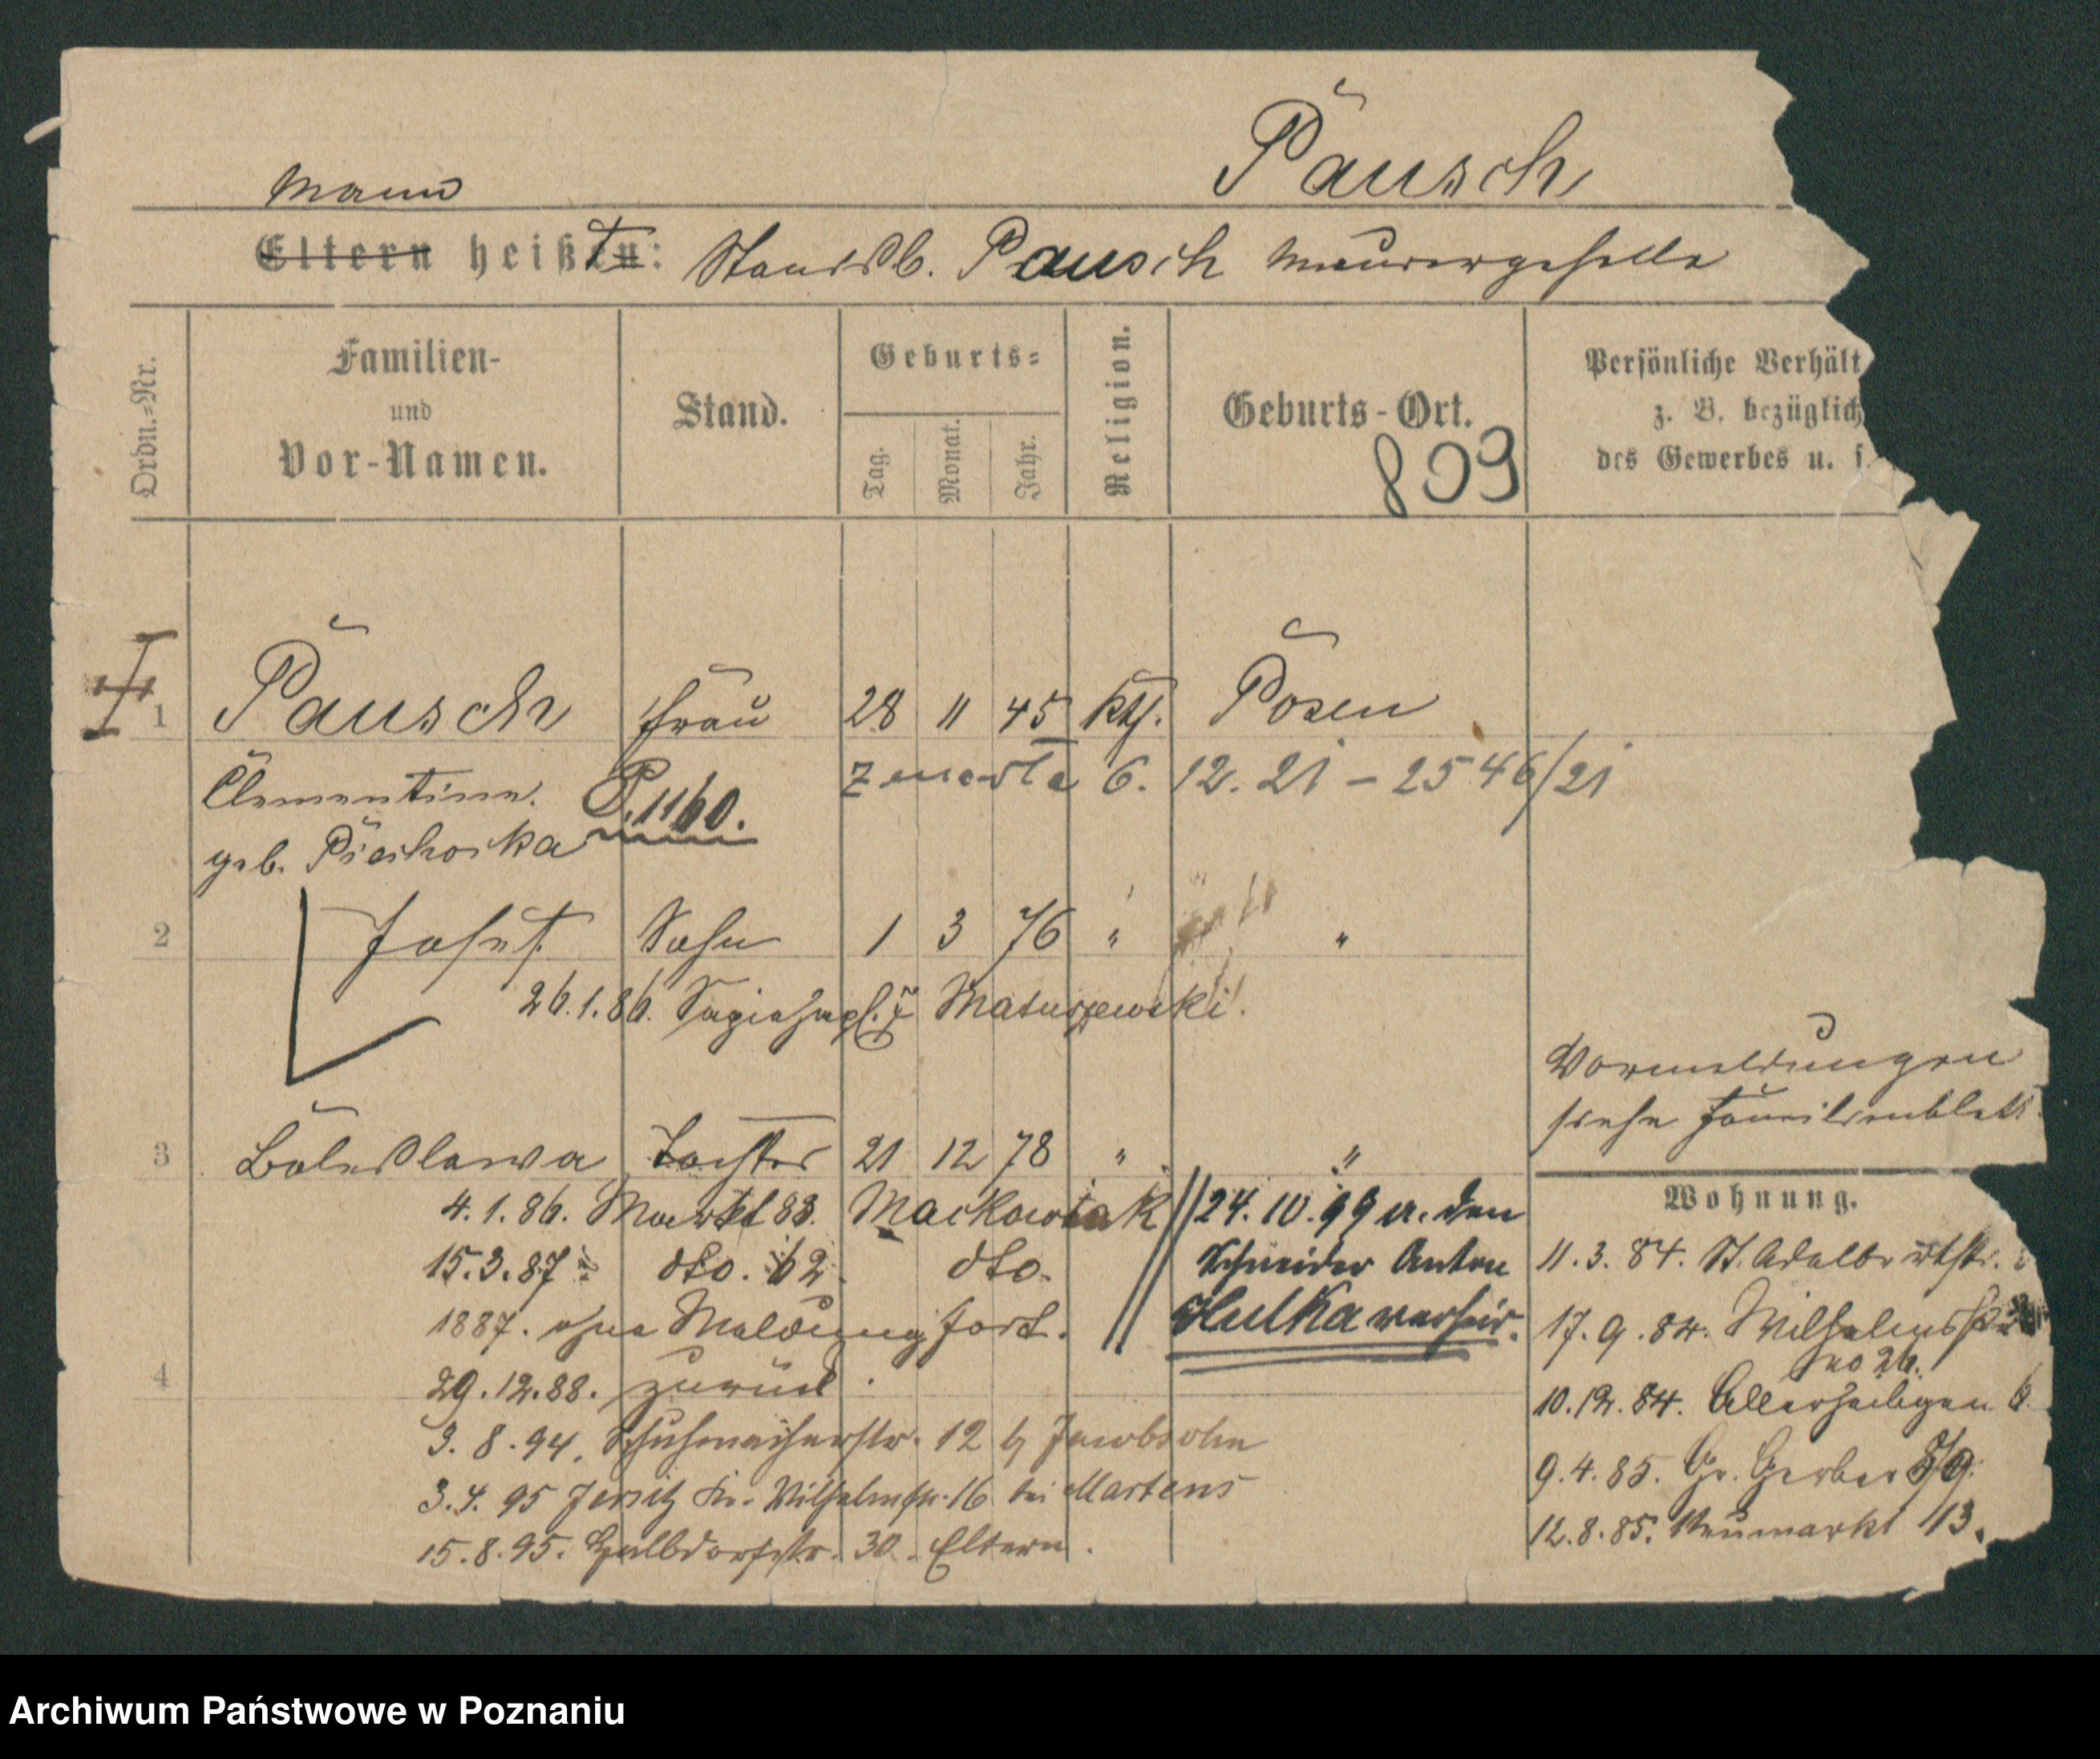 Pausch
Mann
Eltern heißt: Stanisl. Pausch Maurergeselle
Ordn.=Nr.
Familien-
und
Vor-Namen.
Stand.
Geburts=
Tag.
Monat.
Jahr.
Religion.
Geburts-Ort.
809
Persönliche Verhält
z. B. bezüglich
des Gewerbes u. s.
1 Pausch Frau 28 11 45 kth. Posen
Clementine. P. 1160. zmarła 6. 12. 21 - 2546/21
geb. Piechocka
2 Josef. Sohn 1 3 76 " "
26.1.86. Sapiehapl. Matuszewski.
Vormeldungen
siehe Familienblatt
3 Boleslawa Tochter 21 12 78 " "
4.1.86. Markt 83. Mackowiak
15.3.87 dto. 62. dto.
1887. ohne Meldung fort.
4 29.12.88. zurück.
3.8.94. Schuhmacherstr. 12 b Jacobsohn
3.4.95 Jersitz Kr. Wilhelmstr. 16 bei Martens
15.8.95. Halbdorfstr. 30. Eltern.
24.10.99 a. den
Schneider Anton
Hulka verheir.
Wohnung.
11.3.84. St. Adalbertstr.
17.9.84. Wilhelms
no 26.
10.12.84. Allerheiligen 6
9.4.85. Gr. Gerber
12.8.85. Neumarkt 13.
Archiwum Państwowe w Poznaniu